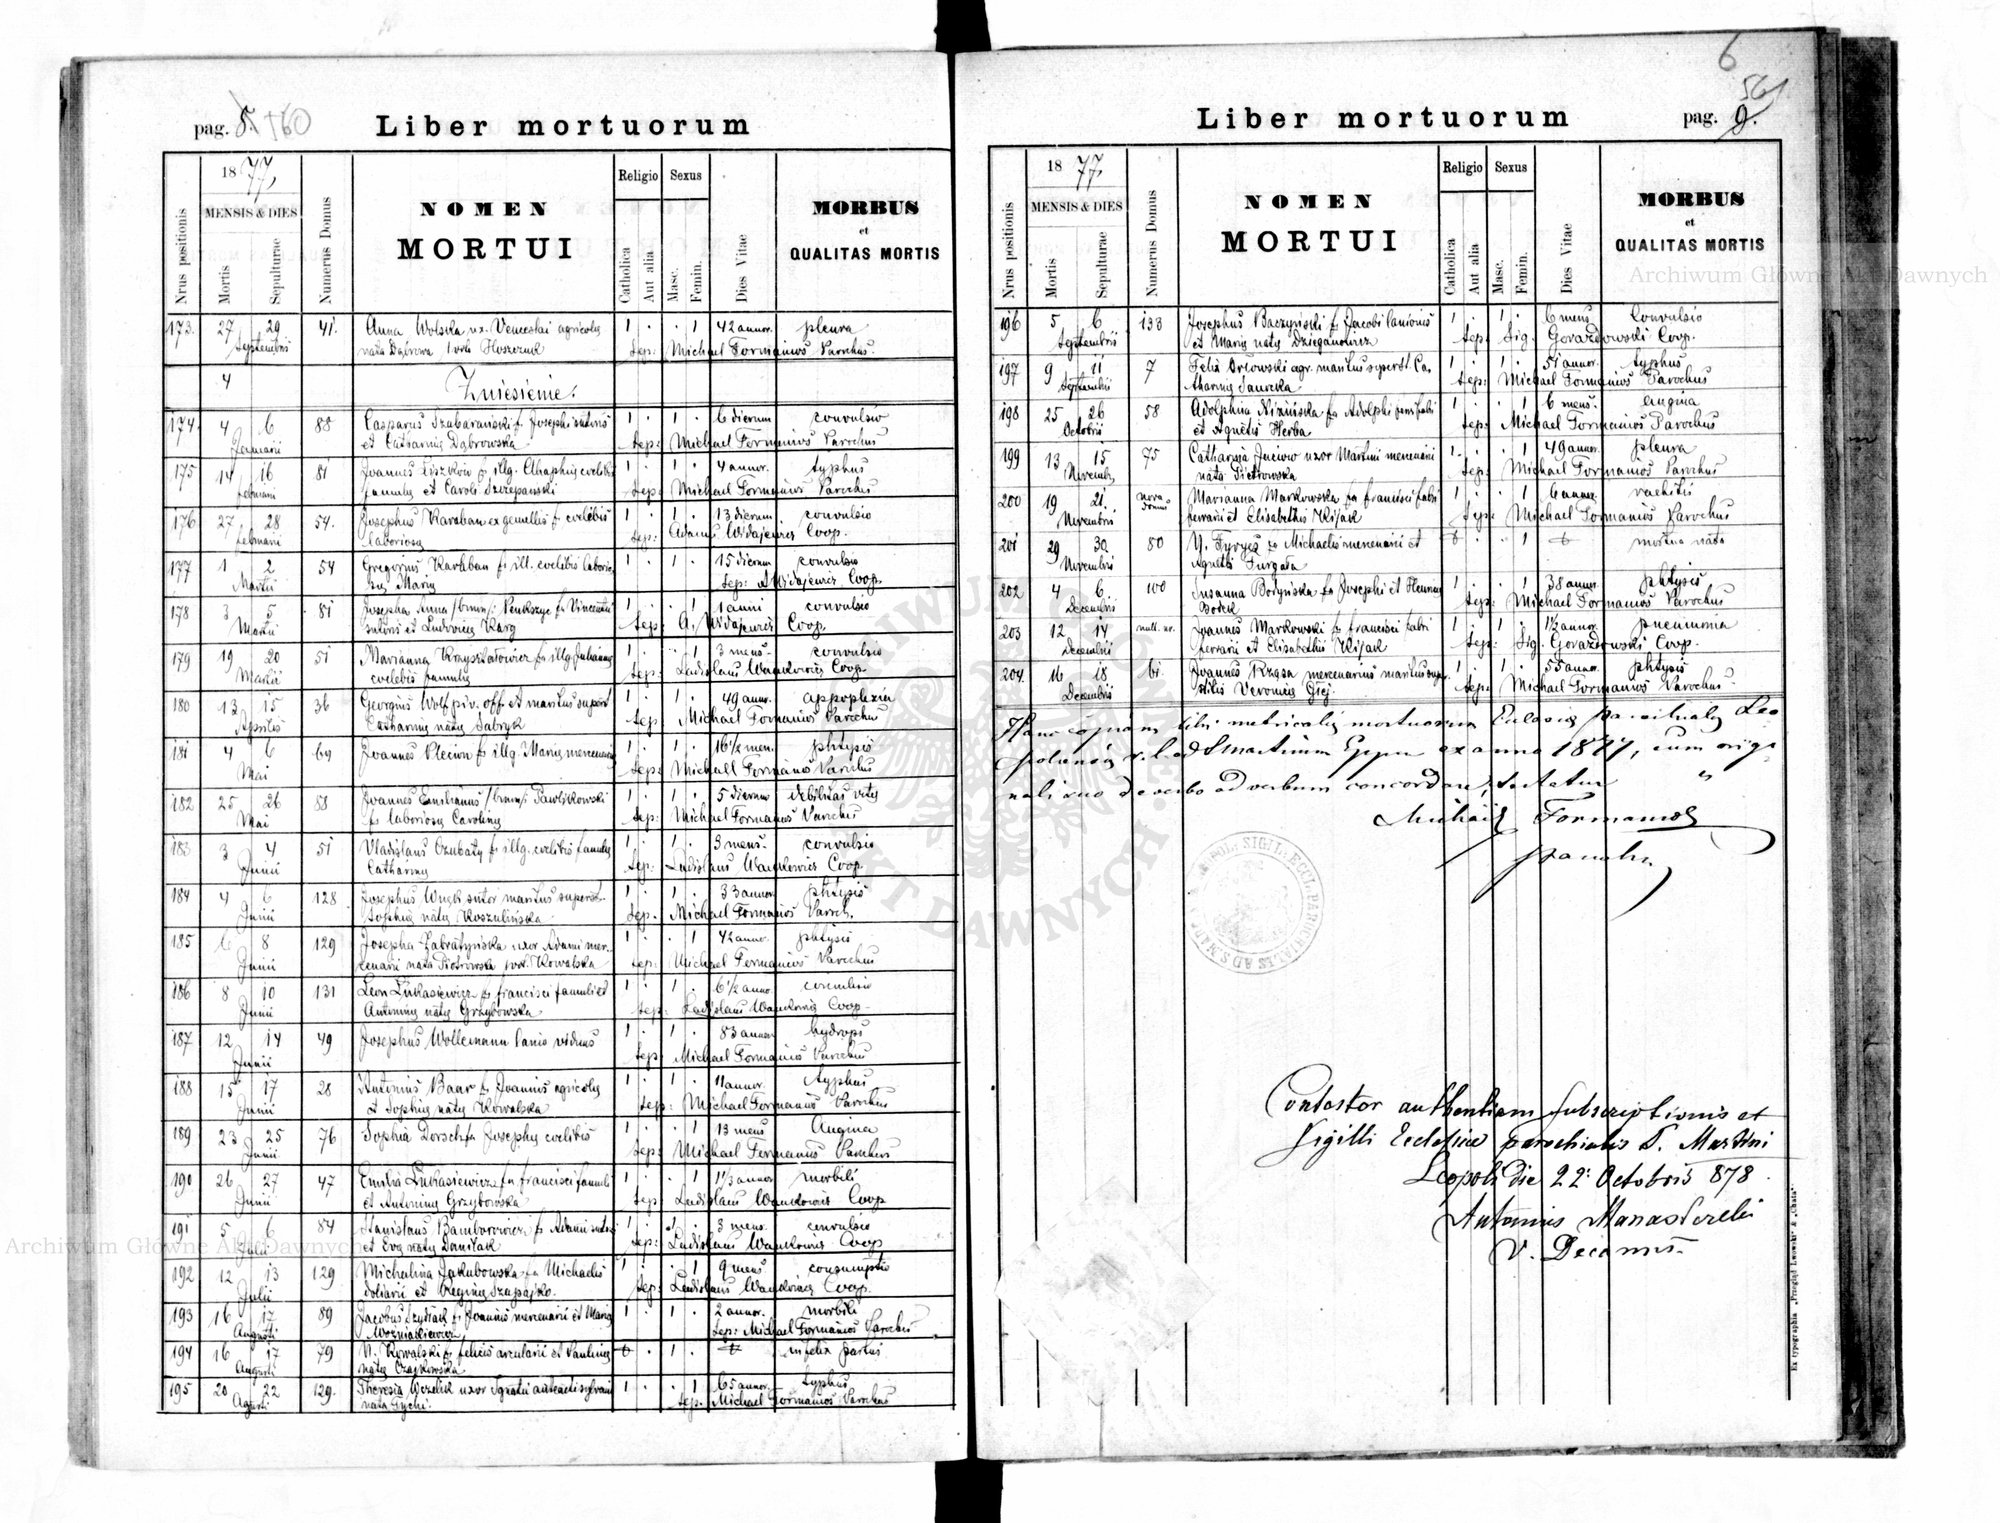 pag. 8. 560
Liber mortuorum
Nrus positionis
1877
MENSIS & DIES
Mortis
Sepulturae
Numerus Domus
NOMEN
MORTUI
Religio
Catholica
Aut alia
Sexus
Masc.
Femin.
Dies Vitae
MORBUS
et
QUALITAS MORTIS
173. 27 29 41. Anna Wolska ux. Venceslai agricolae 1 . . 1 42 annor. pleura
Septembris nata Dąbrowa Sep: Michael Formanios Parochus.
4 Zniesienie.
174 4 6 88 Casparus Szubarański f. Josephi sutoris 1 . 1 . 6 dierum convulsio
Januarii et Catharinae Dąbrowska Sep: Michael Formanios Parochus
175 14 16 81 Joannes f. illg. coelibis 1 . 1 . 4 annor. typhus
februarii famulae et Caroli Szczepanski Sep: Michael Formanios Parochus
176 27 28 54. Josephus Karaban ex gemellis f. coelibis 1 . 1 . 13 dierum convulsio
februarii laboriosae Sep: Adamus Widajewicz Coop.
177 1 2 54 Gregorius Karaban f. ill. coelibis laborio 1 . 1 . 15 dierum convulsio
Martii sae Mariae Sep: A Widajewicz Coop.
178 3 5 81 Josepha Anna /binom/ f. Vincentii 1 . . 1 1 anni convulsio
Martii sutoris et Ludovicae Karg Sep: A. Widajewicz Coop.
179 19 20 51 Marianna Krzyształowicz f. illg. Julianna 1 . . 1 3 mens. convulsio
Martii coelebis famulae Sep: Ladislaus Wankowicz Coop.
180 13 15 36 Georgius Wolf piv. off. et maritus superst 1 . 1 . 49 annor. appoplexia
Aprilis Catharinae natae Sabryk Sep: Michael Formanios Parochus
181 4 6 69 Joannes Plecion f. illg. Mariae mercenariae 1 . 1 . 16 1/2 men. phtysis
Mai Sep: Michaell Formanios Parochus
182 25 26 88 Joannes Emilianus /binom/ Pawlikowski 1 . 1 . 5 dierum debilitas vitae
Mai f. laboriosae Carolinae Sep: Michael Formanios Parochus
183 3 4 51 Vladislaus Czubaty f. illg. coelibis famulae 1 . 1 . 3 mens. convulsio
Junii Catharinae Sep: Ladislaus Wankowicz Coop.
184 4 6 128 Josephus sutor maritus superst. 1 . 1 . 33 annor. phtysis
Junii Sophiae natae Koszulińska Sep. Michael Formanios Paroch.
185 6 8 129 Josepha Zabratyńska uxor Adami mer- 1 . . 1 42 annor. phtysis
Junii cenarii nata Piotrowska Kowalska Sep: Michael Formanios Parochus
186 8 10 131 Leon Lukasiewicz f. francisci famuli et 1 . 1 . 6 1/2 anno. convulsio
Junii Antoninae natae Grzybowska Sep: Ladislaus Wankowicz Coop.
187 12 14 49 Josephus Wollemann lanio viduus 1 . 1 . 83 annor hydrops
Junii Sep: Michael Formanios Parochus
188 15 17 28 Antonius Baar f. Joannis agricolae 1 . 1 . 11 annor. typhus
Junii et Sophiae natae Kowalska Sep: Michael Formanios Parochus
189 23 25 76 Sophia Dorsch fa Josephae coelibis 1 . . 1 13 mens Angina
Junii Sep: Michael Formanios Parochus
190 26 27 47 Emilia Lukasiewicz fa francisci famuli 1 . . 1 1 1/3 annor morbili
Junii et Antoninae Grzybowska Sep: Ladislaus Wankowicz Coop
191 5 6 84 Stanislaus Bamborowicz f. Adami sutoris 1 . 1 . 3 mens. convulsio
Julii et Eva natae Daniłak Sep: Ladislaus Wankowicz Coop
192 12 13 129 Michalina Jakubowska fa Michaelis 1 . . 1 9 mens consumptio
Julii doliarii et Reginae Szapajko. Sep: Ladislaus Wankowicz Coop.
193 16 17 89 Jacobus Szydłak f. Joannis mercenarii et Maria 1 . 1 . 2 annor. morbili
Augusti Wozniakiewicz Sep: Michael Formanios Parochus
194 16 17 79 N. Kowalski f. felicis arcularii et Paulinae . 1 . infelix partus
Augusti natae Czajkowska
195 20 22 129. Theresia uxor Ignatii 1 . . 1 65 annor. typhus
Agusti nata Gychi. Sep. Michael Formanios Parochus
6
561
pag. 9.
Liber mortuorum
Nrus positionis
1877
MENSIS & DIES
Mortis
Sepulturae
Numerus Domus
NOMEN
MORTUI
Religio
Catholica
Aut alia
Sexus
Masc.
Femin.
Dies Vitae
MORBUS
et
QUALITAS MORTIS
196 5 6 133 Josephus Baczyński f. Jacobi lanionis 1 . 1 . 6 mens Convulsio
Septembris et Mariae natae Dzieganowicz Sep: Sig. Gorazdowski Coop.
197 9 11 7 Felix Orłowski agr. maritus superst. Ca- 1 . 1 . 51 annor. typhus
Septembris tharinae Sawicka Sep: Michael Formanios Parochus
198 25 26 58 Adolphina Nizinska fa Adolphi 1 . . 1 6 mens. angina
Octobris et Agnetis Herba Sep: Michael Formanios Parochus
199 13 15 75 Catharina Juciow uxor Martini mercenarii 1 . . 1 49 annor. pleura
Novembr. nata Piotrowska Sep: Michael Formanios Parochus
200 19 21. nova domus Marianna Markowska fa francisci fabri 1 . . 1 6 annor. rachitis
Novembris ferrarii et Elisabethae Kijak Sep: Michael Formanios Parochus
201 29 30 80 N. fa Michaelis mercenarii et . 1 mortua nata
Novembris Agnetis Furgała
202 4 6 100 Susanna Bodyńska fa Josephi et 1 . . 1 38 annor. phtysis
Decembris Bodek Sep: Michael Formanios Parochus
203 12 14 null. nr. Joannes Markowski f. francisci fabri 1 . 1 . 1 1/2 annor. pneumonia
Decembris ferrarii et Elisabethae Kijak Sep: Sig. Gorazdowski Coop.
204. 16 18 61. Joannes Rząsa mercenarius maritus super 1 . 1 . 55 annor. phtysis
Decembris stitis Veronicae Giej. Sep: Michael Formanios Parochus
Hanc copiam libri metricalis mortuorum Eclesiae parochialis Leo
poliensis r. l. ad S Martinum Eppm ex anno 1877, cum origi
nali suo de verbo ad verbum concordare, testatur
Michael Formanios
parochus
SIGIL. ECCL. PAROCHIALIS AD S. MART
Contestor authentiam subscriptionis et
sigilli Ecclesiae parochialis S. Martini
Leopoli die 22. Octobris 878.
Antonius Manasterski
V. Decanus.
Ex typographia „Przegląd Lwowski“ & „Chata“.
Archiwum Główne Akt Dawnych
Archiwum Główne Akt Dawnych
ARCHIWUM GŁÓWNE AKT DAWNYCH